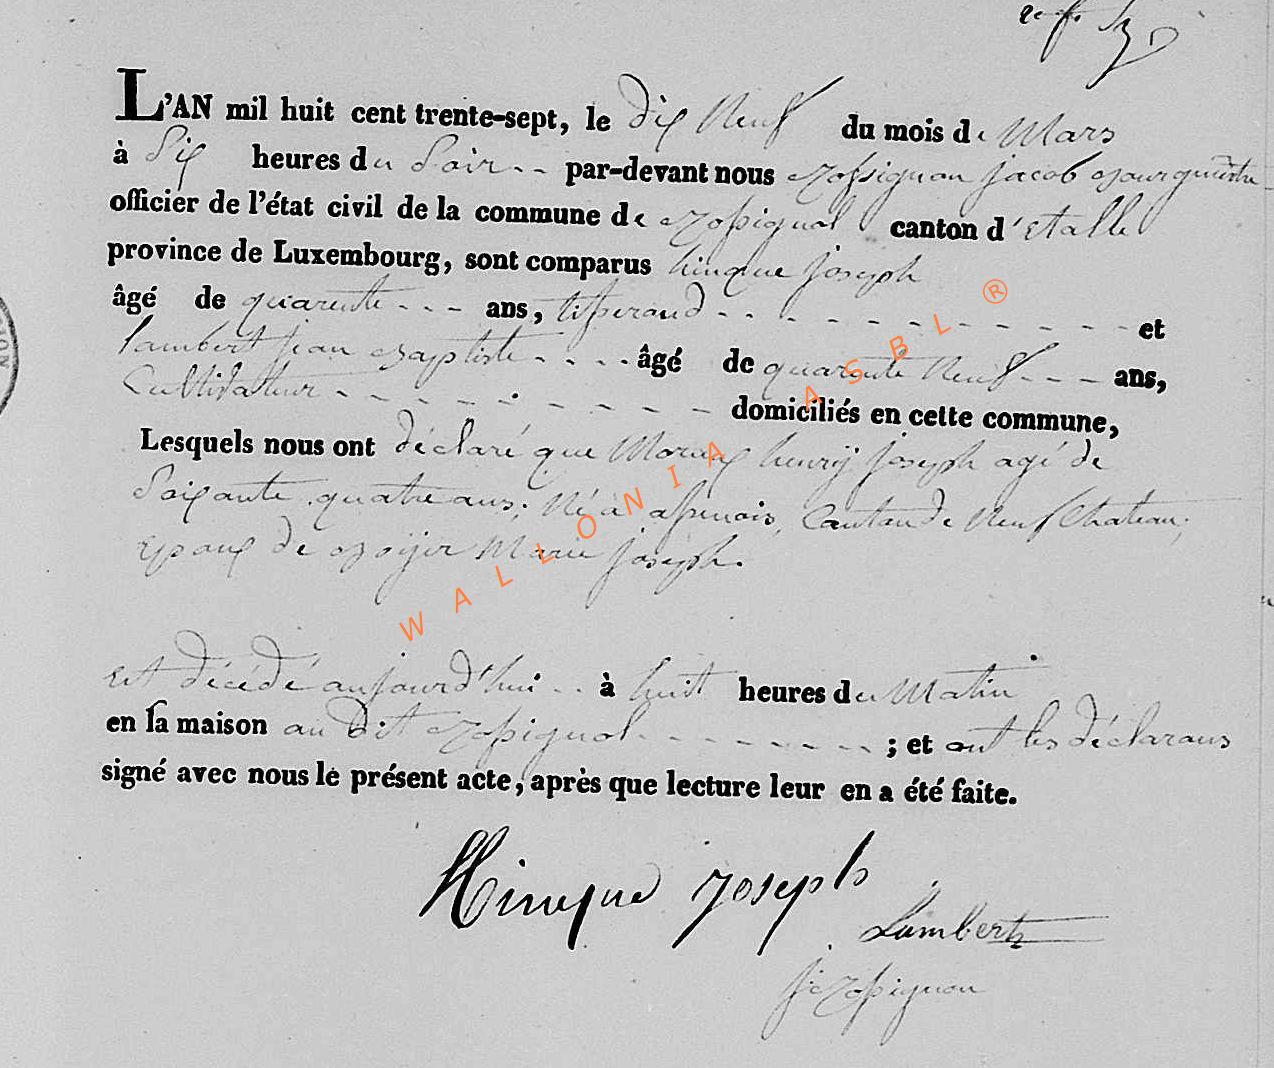 L'AN mil huit cent trente-sept, le dix Neuf du mois de Mars
à Six heures du Soir -- par-devant nous Rossignon jacob Bourguemestre
officier de l'état civil de la commune de Rossignol canton d'Etalle
province de Luxembourg, sont comparus hinque joseph
âgé de quarente --- ans, tisserand et
lambert jean Baptiste ---- âgé de quarente Neuf --- ans,
Cultivateur domiciliés en cette commune,
Lesquels nous ont déclaré que henry joseph agé de
Soixante quatre ans; Né à assenois, Canton de Neufchateau;
Epoux de Marie joseph.
Est décédé aujourd'hui -- à huit heures du Matin
en sa maison au Dit Rossignol ; et ont les déclarans
signé avec nous le présent acte, après que lecture leur en a été faite.
Hinque joseph
Lambert
j Rossignon
WALLONIA ASBL ®